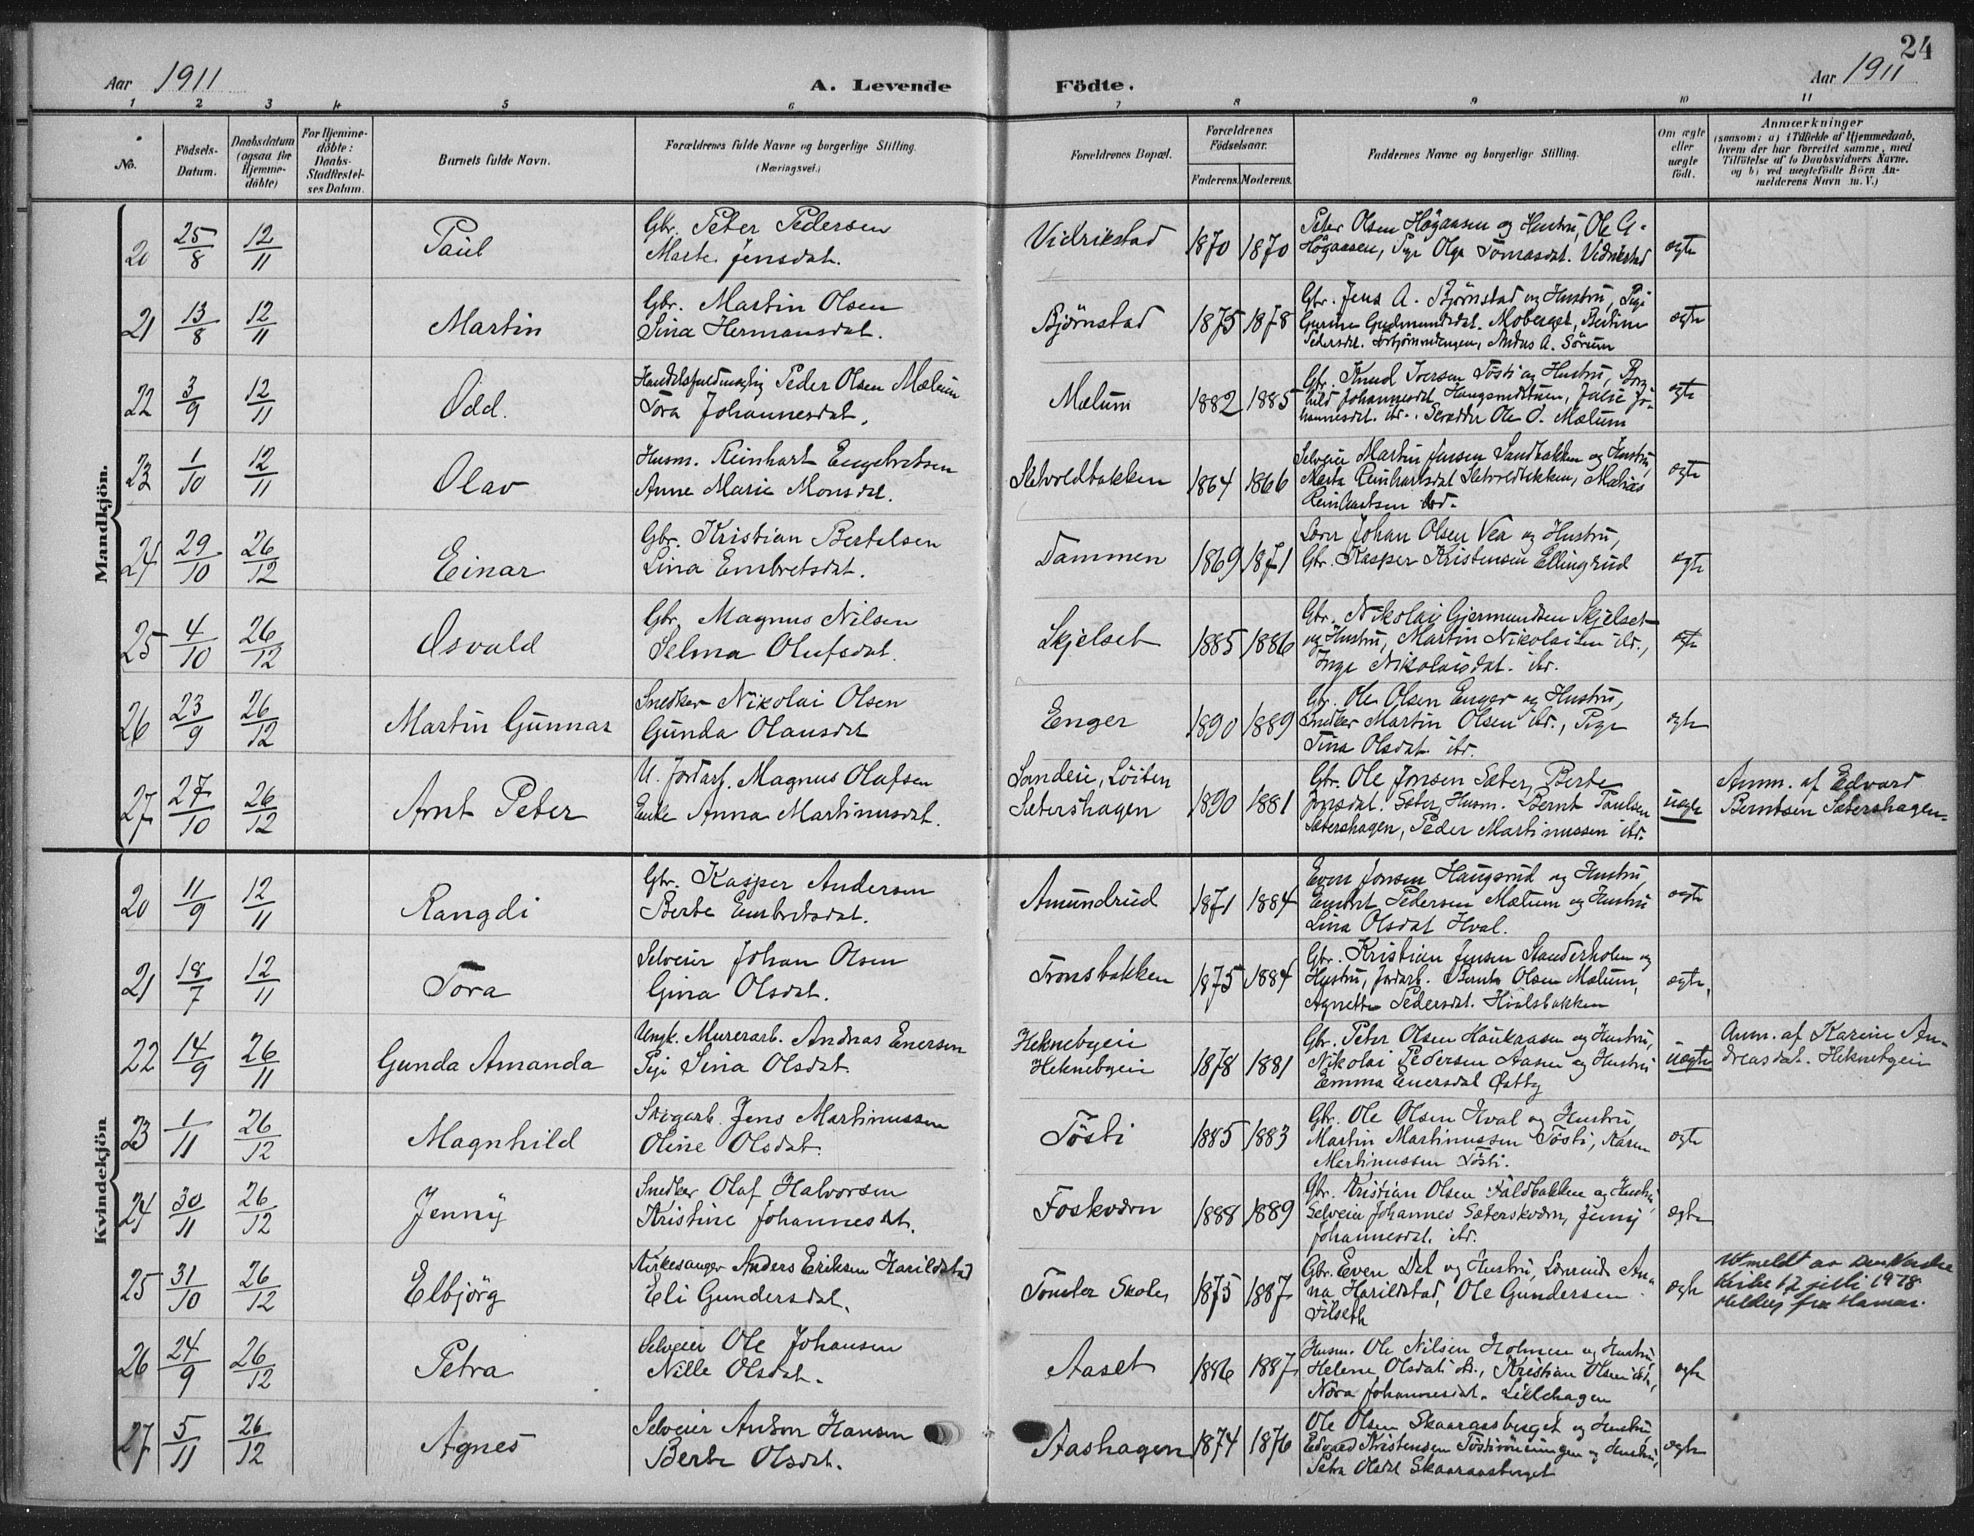 24
Aar 1911
A. Levende Födte.
Aar 1911
1 2 3 4 5 6 7 8 9 10 11
No.
Födsels-Datum.
Daabsdatum (ogsaa for Hjemme-döbte)
For Hjemme-döbte: Daabs-Stadfæstel-ses Datum.
Barnets fulde Navn.
Forældrenes fulde Navne og borgerlige Stilling.
(Næringsvei.)
Forældrenes Bopæl.
Forældrenes Födselsaar.
Faderens. Moderens.
Faddernes Navne og borgerlige Stilling.
Om ægte eller uægte födt.
Anmærkninger
(saasom: a) i Tilfælde af Hjemmedaab, hvem der har forrettet samme, med Tilföielse af to Daabsvidners Navne. og b) ved uægtefödte Börn An-melderens Navn m. V.)
Mandkjön.
20 25/8 12/11 Paul
Gbr. Peter Pedersen
Marte Jensdat.
Vidrikstad 1870 1870
Peter Olsen Högaasen og Hustru, Ole G.
Högaasen, Pige Olga Tomasdat. Vidrikstad
ægte
21 13/8 12/11 Martin
Gbr. Martin Olsen
Sina Hermansdat.
Bjørnstad 1875 1878
Gbr. Jens A. Bjørnstad og Hustru, Pige
Gurine Gudmundsdat. Moberget,
Pedersdat. A. Sörum
ægte
22 3/9 12/11 Odd.
Handelsfuldmægtig Peder Olsen Mælum
Tora Johannesdat.
Mælum 1882 1885
Gbr. Knud Iversen Tösti og Hustru, Borg-
hild Johannesdat. Julie Jo-
hannesdat. ibd. Skrædder Ole O. Mælum
ægte
23 1/10 12/11 Olav
Husm. Reinhart Engebretsen
Anne Marie Monsdat.
Sletvoldbakken 1864 1866
Selveier Martin Jensen Sandbakken og Hustru,
Marta Reinhartsdat Sletvoldbakken, Matias
Reinhartsen ibd.
ægte
24 29/10 26/12 Einar
Gbr. Kristian Bertelsen
Lina Embretsdat.
Dammen 1869 1871
Johan Olsen Vea og Hustru,
Gbr. Kasper Kristensen Ellingsrud
ægte
25 4/10 26/12 Osvald
Gbr. Magnus Nilsen
Selma Olufsdat.
Skjelset 1885 1886
Gbr. Nikolai Gjermundsen Skjelset
og Hustru, Martin Nikolaisen ibd.,
Inga Nikolaisdat. ibd.
ægte
26 23/9 26/12 Martin Gunnar
Snedker Nikolai Olsen
Gunda Olausdat
Enger 1890 1889
Gbr. Ole Olsen Enger og Hustru,
Snedker Martin Olsen ibd., Pige
Tina Olsdat ibd.
ægte
27 27/10 26/12 Arnt Peter
U. Jordarb. Magnus Olafsen
Enke Anna Martinusdat.
Sandeie, Löiten
Sætershagen 1890 1881
Gbr. Ole Jonsen Sæter, Berte
Jonsdat. Sæter, Husm. Bernt Paulsen
Sætershagen, Peder Martinussen ibd.
uægte
Anm. af Edvard
Berntsen Sætershagen.
Kvindekjön
20 11/9 12/11 Rangdi
Gbr. Kasper Andersen
Berte Embretsdat.
Amundrud 1871 1884
Even Jonsen Haugsrud og Hustru,
Embret Pedersen Mælum og Hustru
Lina Olsdat Hval.
ægte
21 18/7 12/11 Tora
Selveier Johan Olsen
Gina Olsdat.
Tronsbakken 1875 1884
Gbr. Kristian Jensen Standerholen og
Hustru, Jordarb. Bernt Olsen Mælum,
Agnette Pedersdat. Hvalsbakken
ægte.
22 14/9 26/11 Gunda Amanda
Ungk. Murerarb. Andreas Enersen
Pige Sina Olsdat
Heknebyeie
Heknebyeie 1878 1881
Gbr. Peter Olsen Haukaasen og Hustru,
Nikolai Pedersen Aasen og Hustru
Emma Enersdat Østby
uægte
Anm. af Karine An-
dreasdat. Heknebyeie
23 1/11 26/12 Magnhild
Skogarb. Jens Martinussen
Oline Olsdat.
Tösti 1885 1883
Gbr. Ole Olsen Hval og Hustru,
Martin Martinussen Tösti, Karen
Martinussen Tösti.
ægte
24 30/11 26/12 Jenny
Snedker Olaf Halvorsen
Kristine Johannesdat.
Foskværn 1888 1889
Gbr. Kristian Olsen Faldbakken og Hustru,
Selveier Johannes Sæterskværn, Jenny
Johannesdat. ibd.
ægte
25 31/10 26/12 Elbjörg
Kirkesanger Anders Eriksen Harildstad
Eli Gundersdat.
Tomter Skole 1875 1887
Gbr. Even Dæl og Hustru, Lærerinde An-
na Harildstad, Ole Gundersen
Filseth
ægte
Utmeldt av Den Norske
Kirke 17 juli 1978
Melding fra Hamar.
26 24/9 26/12 Petra
Selveier Ole Johansen
Nille Olsdat.
Aaset 1886 1887
Husm. Ole Nilsen Holmen og Hustru,
Helene Olsdat ibd., Kristian Olsen ibd.,
Nora Johannesdat. Lillehagen
ægte
27 5/11 26/12 Agnes
Selveier Anton Hansen
Berte Olsdat.
Aashagen 1874 1876
Ole Olsen Skaaraasberget og Hustru,
Edvard Kristensen og Hustru,
Petra Olsdat Skaaraasberget
ægte